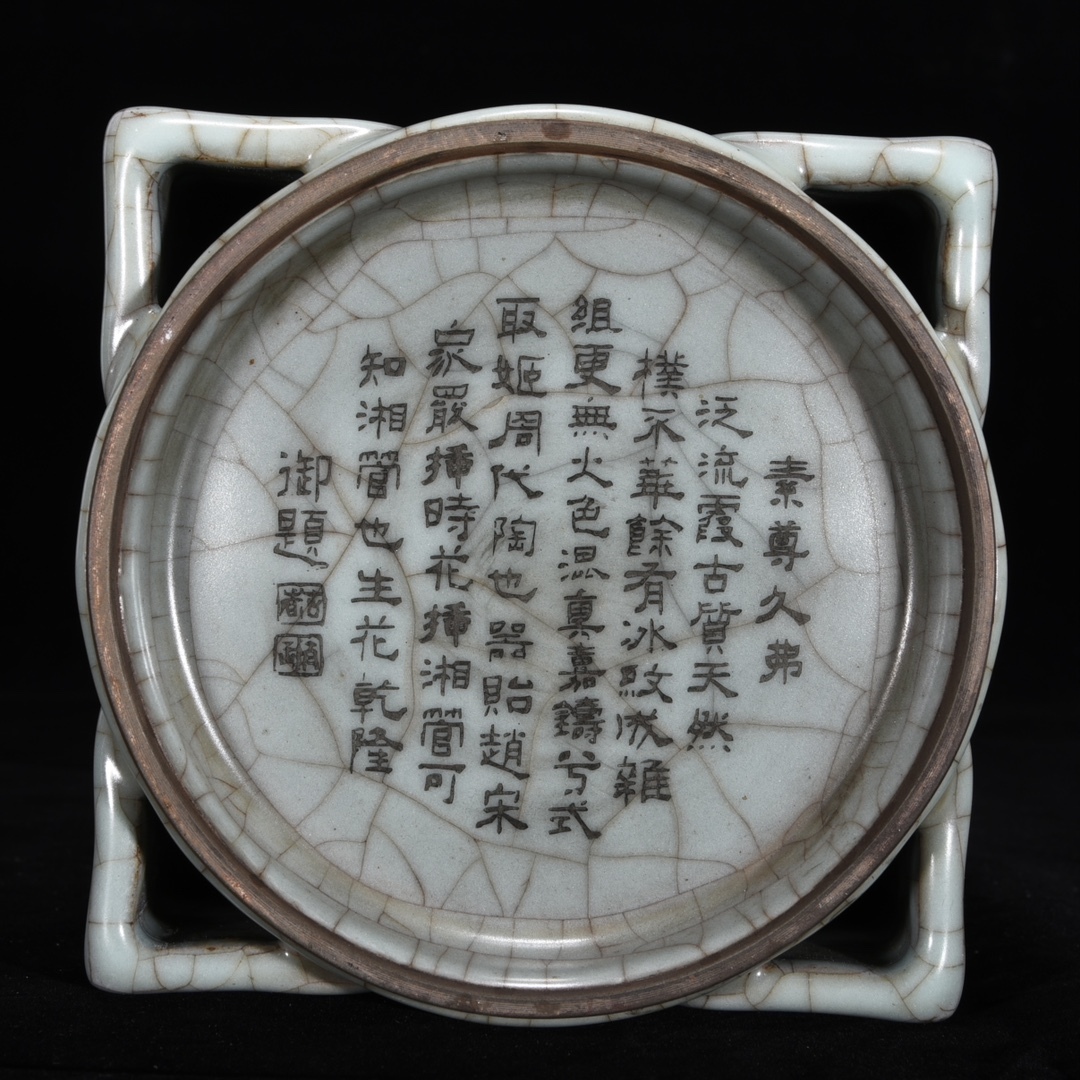 素尊久弗
泛流霞古質天然
樸不華餘有冰紋成雜
組更無火色混真嘉鑄兮式
取姬周代陶也器貽趙宋
家罷插時花插湘管可
知湘管也生花乾隆
御題